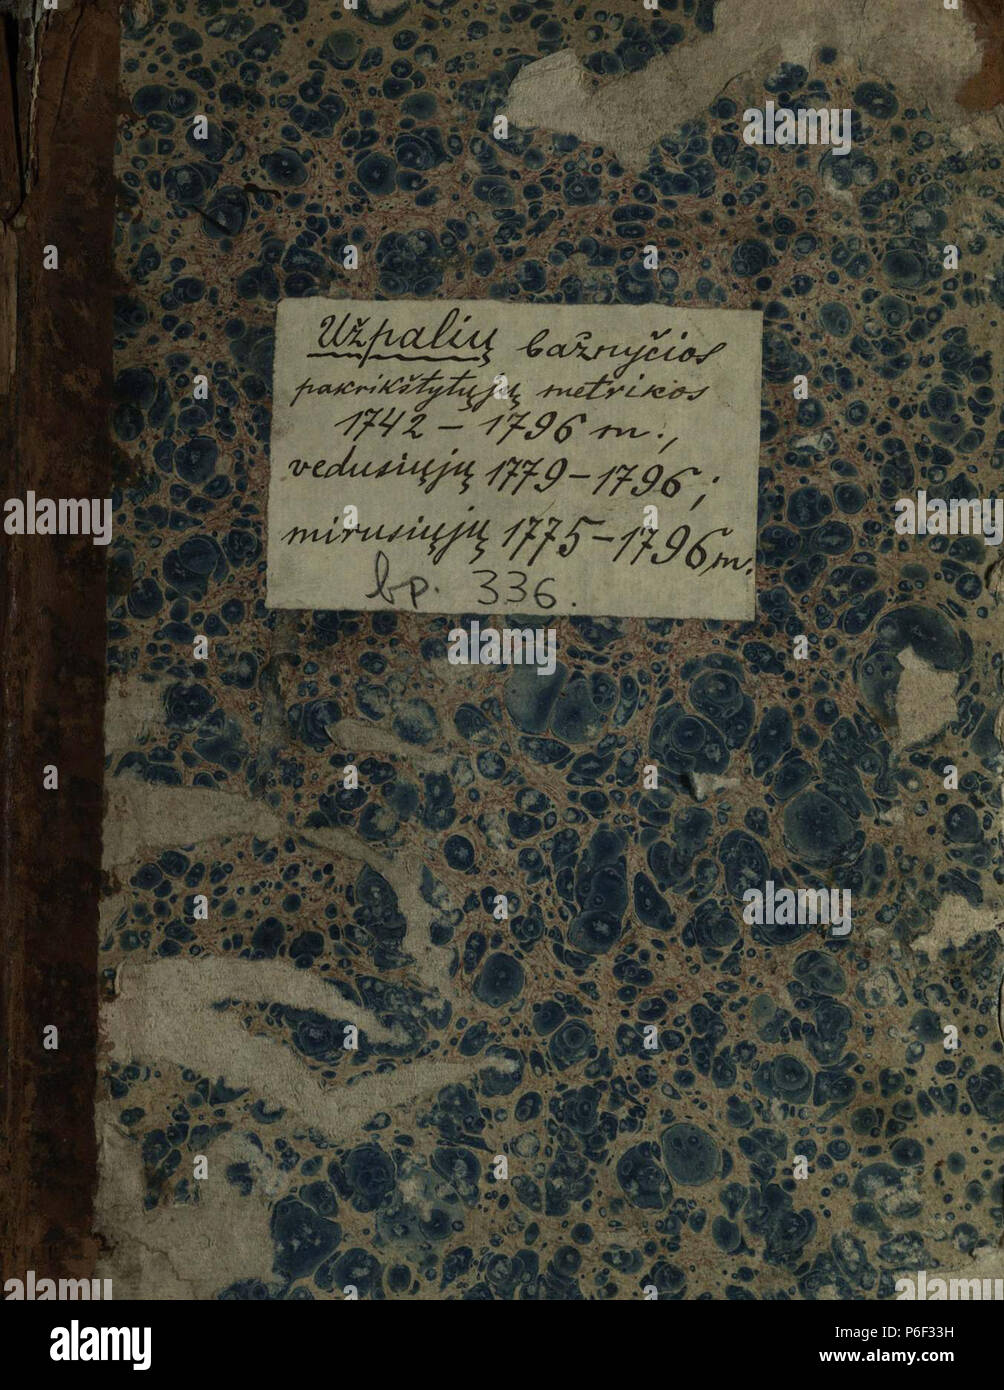 Užpalių bažnyčios
pakrikštytųjų metrikos
1742 – 1796 m.,
vedusiųjų 1779 – 1796;
mirusiųjų 1775 – 1796 m.
bp. 336.
alamy
alamy
alamy
alamy
alamy
alamy
alamy
alamy
alamy
Image ID: P6F33H
www.alamy.com